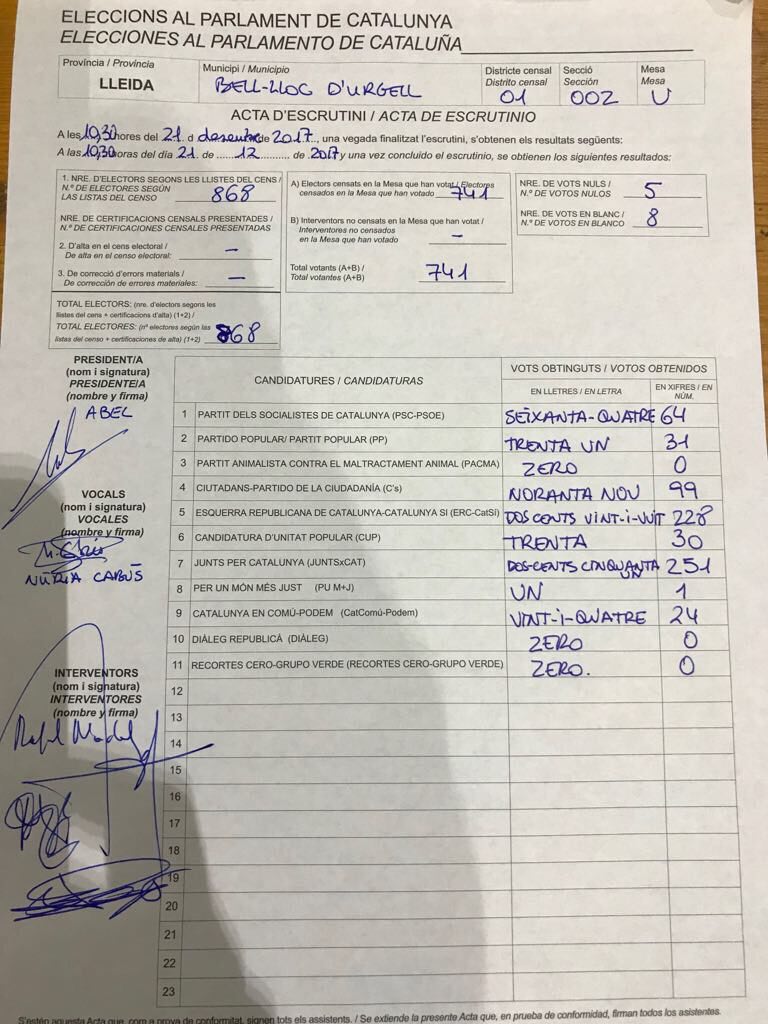 ELECCIONS AL PARLAMENT DE CATALUNYA
ELECCIONES AL PARLAMENTO DE CATALUÑA
Província / Provincia
LLEIDA
Municipi / Municipio
BELL-LLOC D'URGELL
Districte censal
Distrito censal
01
Secció
Sección
002
Mesa
Mesa
U
ACTA D'ESCRUTINI / ACTA DE ESCRUTINIO
A les 10,30 hores del 21 d desembre de 2017, una vegada finalitzat l'escrutini, s'obtenen els resultats següents:
A las 10,30 horas del día 21 de 12 de 2017 y una vez concluido el escrutinio, se obtienen los siguientes resultados:
1. NRE. D'ELECTORS SEGONS LES LLISTES DEL CENS /
N.º DE ELECTORES SEGÚN
LAS LISTAS DEL CENSO 868
NRE. DE CERTIFICACIONS CENSALS PRESENTADES /
N.º DE CERTIFICACIONES CENSALES PRESENTADAS
2. D'alta en el cens electoral /
De alta en el censo electoral: –
3. De correcció d'errors materials /
De corrección de errores materiales: –
TOTAL ELECTORS: (nre. d'electors segons les
llistes del cens + certificacions d'alta) (1+2) /
TOTAL ELECTORES: (nº electores según las
listas del censo + certificaciones de alta) (1+2) 868
A) Electors censats en la Mesa que han votat / Electores
censados en la Mesa que han votado 741
B) Interventors no censats en la Mesa que han votat /
Interventores no censados
en la Mesa que han votado –
Total votants (A+B) /
Total votantes (A+B) 741
NRE. DE VOTS NULS /
N.º DE VOTOS NULOS 5
NRE. DE VOTS EN BLANC /
N.º DE VOTOS EN BLANCO 8
PRESIDENT/A
(nom i signatura)
PRESIDENTE/A
(nombre y firma)
ABEL
VOCALS
(nom i signatura)
VOCALES
(nombre y firma)
NÚRIA CABÚS
INTERVENTORS
(nom i signatura)
INTERVENTORES
(nombre y firma)
CANDIDATURES / CANDIDATURAS
VOTS OBTINGUTS / VOTOS OBTENIDOS
EN LLETRES / EN LETRA
EN XIFRES / EN
NÚM.
1 PARTIT DELS SOCIALISTES DE CATALUNYA (PSC-PSOE) SEIXANTA-QUATRE 64
2 PARTIDO POPULAR/ PARTIT POPULAR (PP) TRENTA UN 31
3 PARTIT ANIMALISTA CONTRA EL MALTRACTAMENT ANIMAL (PACMA) ZERO 0
4 CIUTADANS-PARTIDO DE LA CIUDADANÍA (C's) NORANTA NOU 99
5 ESQUERRA REPUBLICANA DE CATALUNYA-CATALUNYA SÍ (ERC-CatSí) DOS CENTS VINT-I-VUIT 228
6 CANDIDATURA D'UNITAT POPULAR (CUP) TRENTA 30
7 JUNTS PER CATALUNYA (JUNTSxCAT) DOS-CENTS CINQUANTA UN 251
8 PER UN MÓN MÉS JUST (PU M+J) UN 1
9 CATALUNYA EN COMÚ-PODEM (CatComú-Podem) VINT-I-QUATRE 24
10 DIÀLEG REPUBLICÀ (DIÀLEG) ZERO 0
11 RECORTES CERO-GRUPO VERDE (RECORTES CERO-GRUPO VERDE) ZERO. 0
12
13
14
15
16
17
18
19
20
21
22
23
S'estén aquesta Acta que, com a prova de conformitat, signen tots els assistents. / Se extiende la presente Acta que, en prueba de conformidad, firman todos los asistentes.